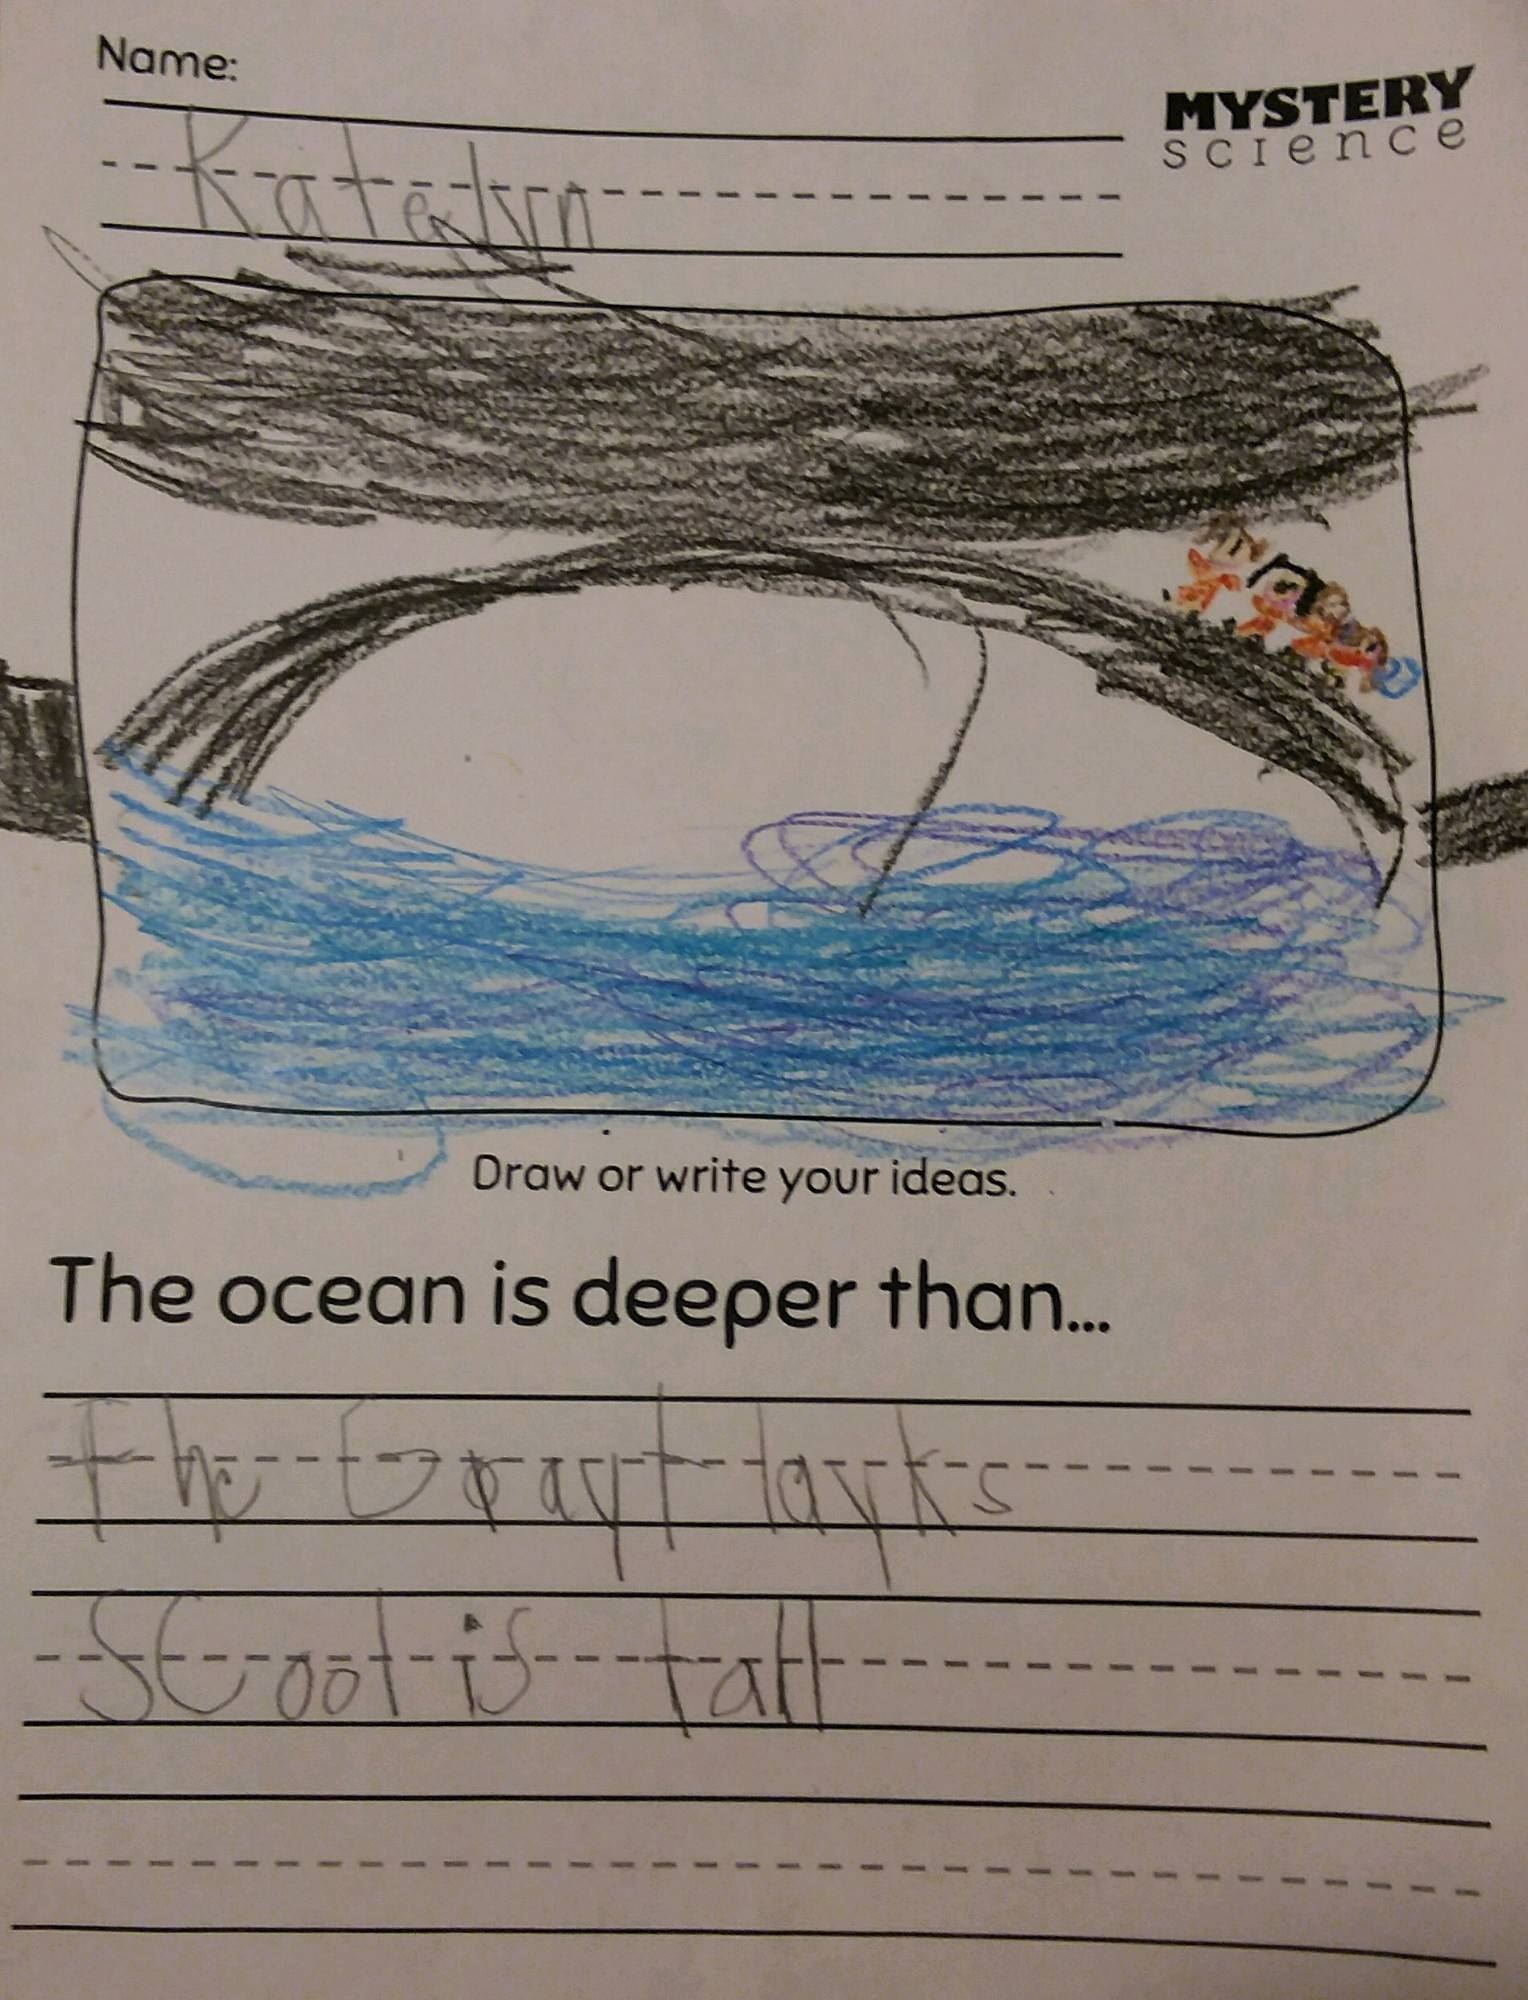 Name:
MYSTERY
science
Katelyn
Draw or write your ideas.
The ocean is deeper than...
The Grayt layks
SCool is tall